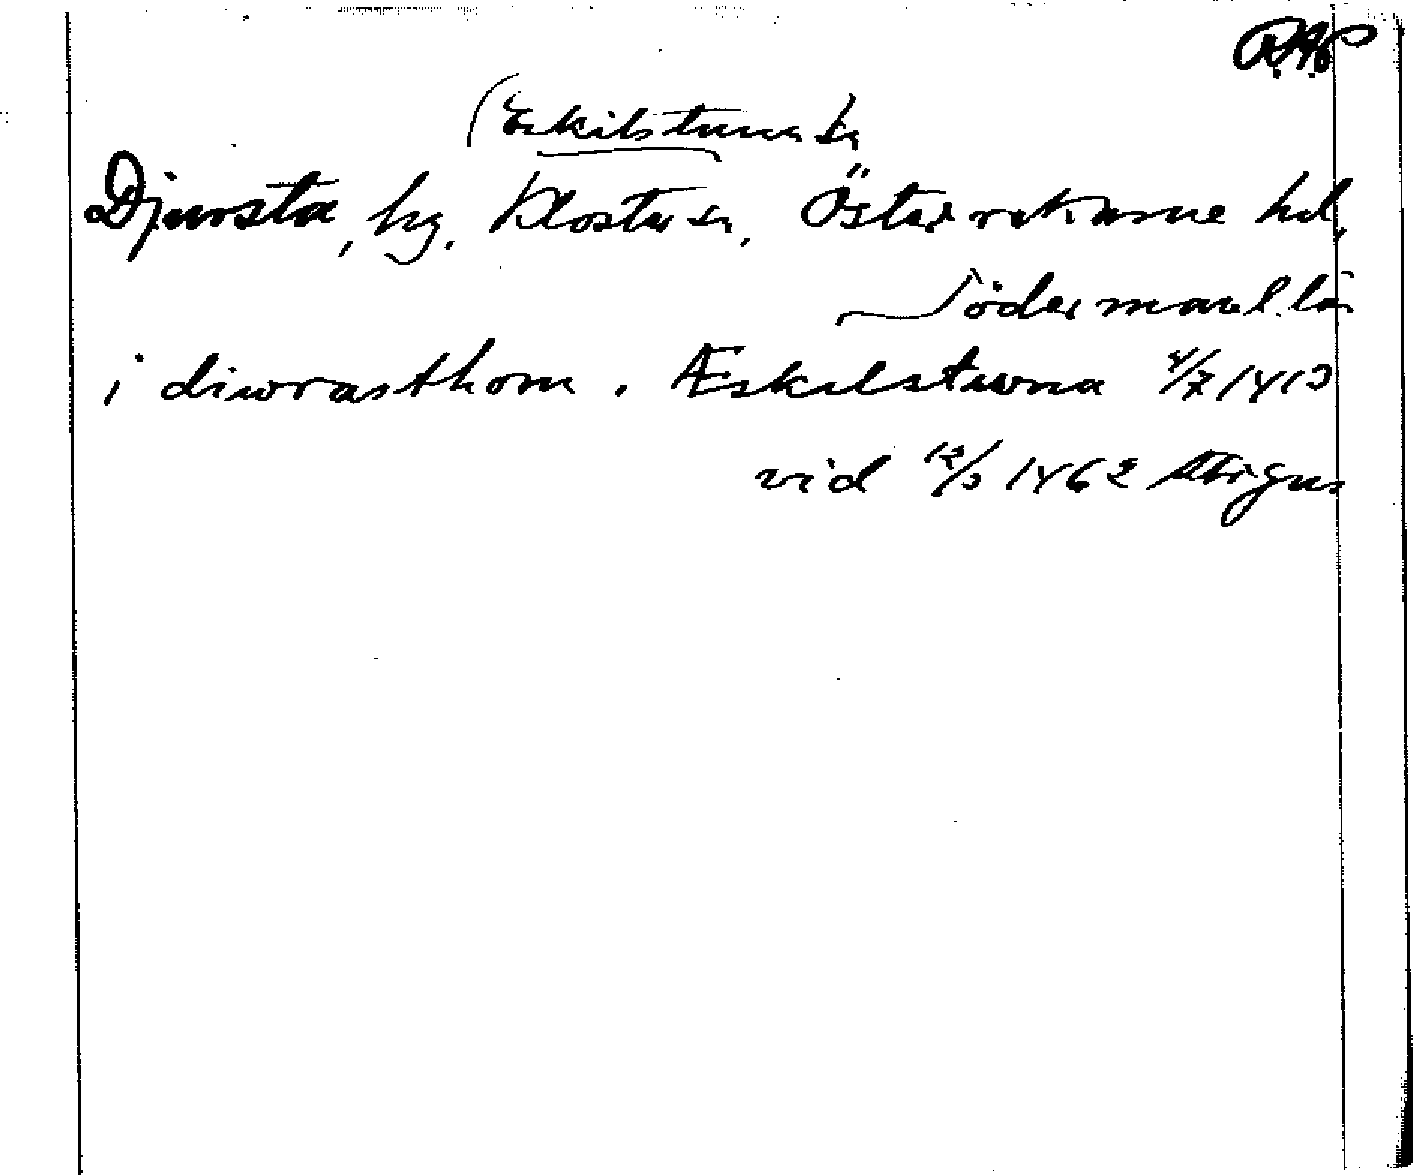 R.A.P
(Eskilstuna sn
Djursta, hg. Kloster sn, Österrekarne hd,
Södermanl. län
i diwrasthom. Æskilstwna 4/7 1413
vid 12/3 1462